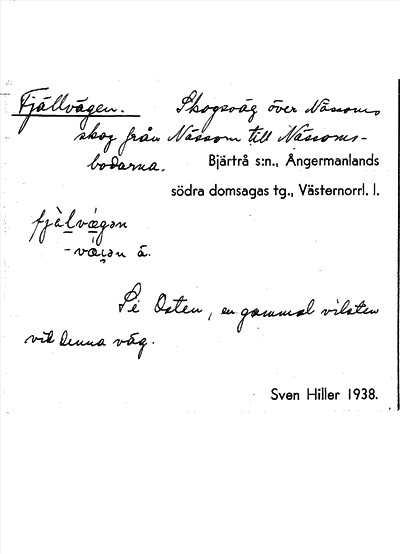 Fjällvägen. Skogsväg över Nässoms
skog från Nässom till Nässoms-
bodarna. Bjärtrå s:n., Ångermanlands
södra domsagas tg., Västernorrl. l.
fjälvægən
- væɪ̯ən ä.
Se Osten, en gammal vilsten
vid denna väg.
Sven Hiller 1938.